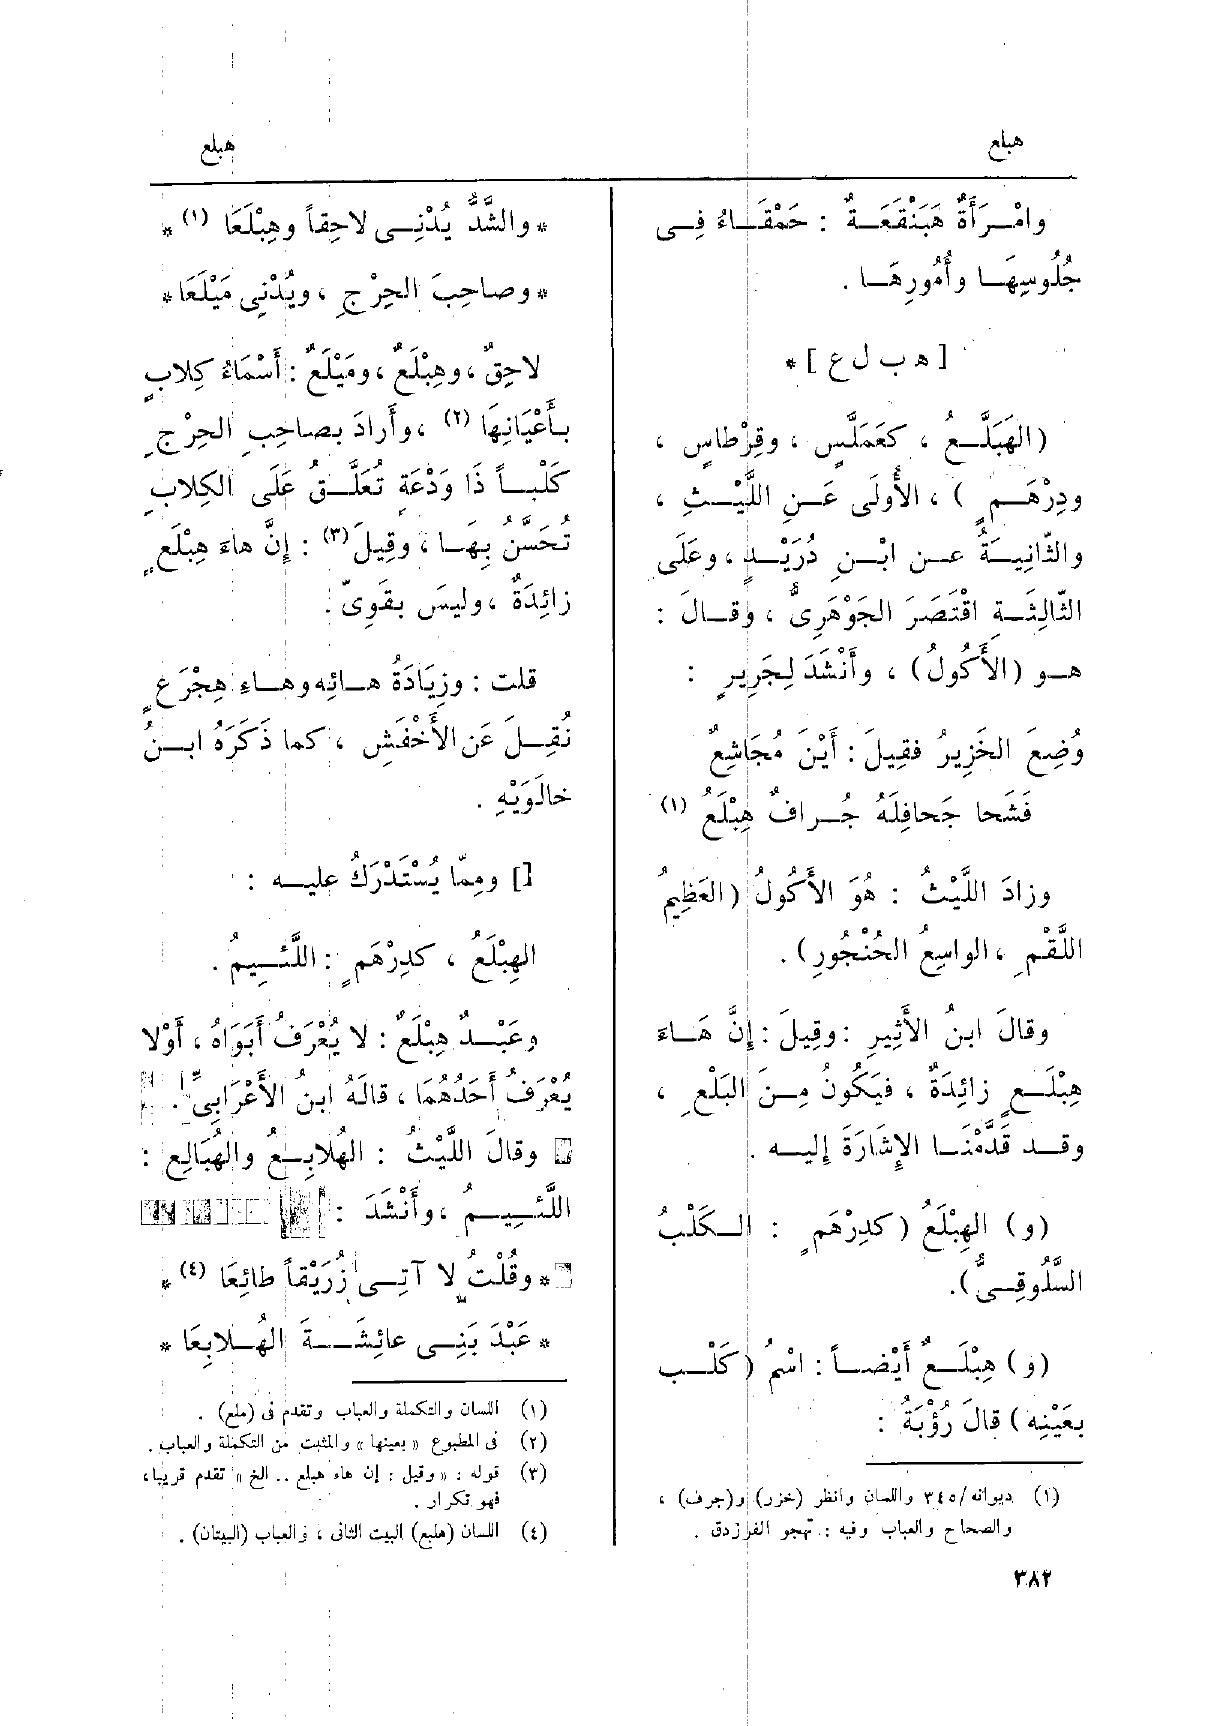 هبلع
هبلع
وامْـرَأَةٌ هَبَنْقَعَـةٌ : حَمْقَـاءُ فِـى
جُلُوسِهَـا وأُمُورِهَـا .
[ ه ب ل ع ] *
(الهَبَلَّـعُ ، كعَمَلَّسٍ ، وقِرْطاسٍ ،
ودِرْهَـمٍ ) ، الأُولَى عَـنِ اللَّيْـثِ ،
والثّانِيَـةُ عـن ابْـنِ دُرَيْـدٍ ، وعَلَى
الثّالِثَـةِ اقْتَصَرَ الجَوْهَرِىُّ ، وقـالَ :
هـو (الأَكُولُ) ، وأَنْشَدَ لِجَرِيرٍ :
وُضِعَ الخَزِيرُ فقِيلَ : أَيْنَ مُجَاشِعٌ
فَشَحا جَحافِلَهُ جُـرافٌ هِبْلَعُ (١)
وزادَ اللَّيْثُ : هُوَ الأَكُولُ (العَظِيمُ
اللَّقْمِ ، الواسِعُ الحُنْجُورِ) .
وقالَ ابنُ الأَثِيرِ : وقِيلَ : إِنَّ هَـاءَ
هِبْلَـعٍ زائِدَةٌ ، فيَكُونُ مِـنَ البَلْعِ ،
وقـد قَدَّمْنَـا الإِشَارَةَ إِليـه .
(و) الهِبْلَعُ (كدِرْهَمٍ : الـكَلْبُ
السَّلُوقِـىُّ).
(و) هِبْلَـعٌ أَيْضـاً : اسْمُ (كَلْـب
بعَيْنِه) قالَ رُؤْبَةُ :
(١) ديوانه/٣٤٥ واللسان وانظر (خزر) و(جرف) ،
والصحاح والعباب وفيه : تهجو الفرزدق .
٣٨٢
* والشَّدُّ يُدْنِـى لاحِقاً وهِبْلَعَا (١) *
* وصاحِبَ الحِرْجِ ، ويُدْنِى مَيْلَعَا*
لاحِقٌ ، وهِبْلَعٌ ، ومَيْلَعٌ : أَسْمَاءُ كِلابٍ
بـأَعْيَانِهَا (٢) ، وأَرادَ بصاحِبِ الحِرْجِ
كَلْبـاً ذَا وَدْعَةٍ تُعَلَّـقُ عَلَى الكِلابِ
تُحَسَّنُ بِهَـا ، وقِيلَ(٣) : إِنَّ هاءَ هِبْلَعٍ
زائِدَةٌ ، وليسَ بقَوِىٍّ .
قلت : وزِيَادَةُ هـائِه وهـاءِ هِجْرَعٍ
نُقِـلَ عَن الأَخْفَشِ ، كما ذَكَرَهُ ابـنُ
خالَوَيْهِ .
[] ومِمّا يُسْتَدْرَكُ عليـه :
الهِبْلَعُ ، كدِرْهَمٍ : اللَّئـيمُ .
وعَبْـدٌ هِبْلَعٌ : لا يُعْرَفُ أَبَوَاهُ ، أَوْلا
يُعْرَفُ أَحَدُهُمَا ، قالَهُ ابنُ الأَعْرَابِىِّ .
وقالَ اللَّيْثُ : الهُلابِـعُ والهُبَالِع :
اللَّئـيـمُ ، وأَنْشَدَ :
* وقُلْتُ لا آتِـى زُرَيْقاً طائِعَا (٤) *
* عَبْدَ بَنِـى عائِشَـةَ الهُـلابِعَا *
(١) اللسان والتكملة والعباب وتقدم فى (ملع) .
(٢) فى المطبوع « بعينها » والمثبت من التكملة والعباب .
(٣) قوله : « وقيل : إن هاء هبلع .. الخ » تقدم قريبا،
فهو تكرار .
(٤) اللسان (هلبع) البيت الثانى ، والعباب (البيتان) .